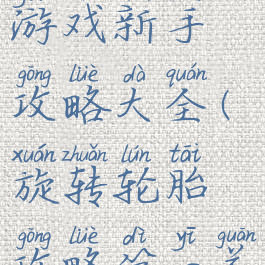 游戏新手
gōng lüè dà quán
攻略大全(
xuán zhuǎn lún tāi
旋转轮胎
gōng lüè dì yī guān
攻略